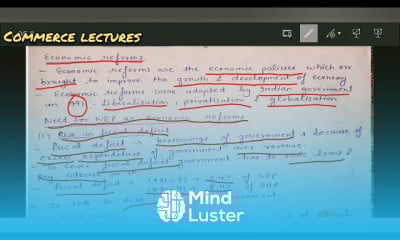 COMMERCE LECTURES
Economic reforms
- Economic reforms are the economic policies which are
brought to improve the growth & development of economy
- Economic reforms were adopted by Indian government
in 1991 :- liberalisation, privatisation & globalisation
Need for NEP or economic reforms
(1) Rise in fiscal deficit
- fiscal deficit → borrowings of government, because of
excess expenditure of government over revenue
- To cover fiscal deficit government has to raise loans &
pay interest on it
- fiscal deficit → 1981-82 → of GDP
of GDP
- It led to debt
Mind
Luster